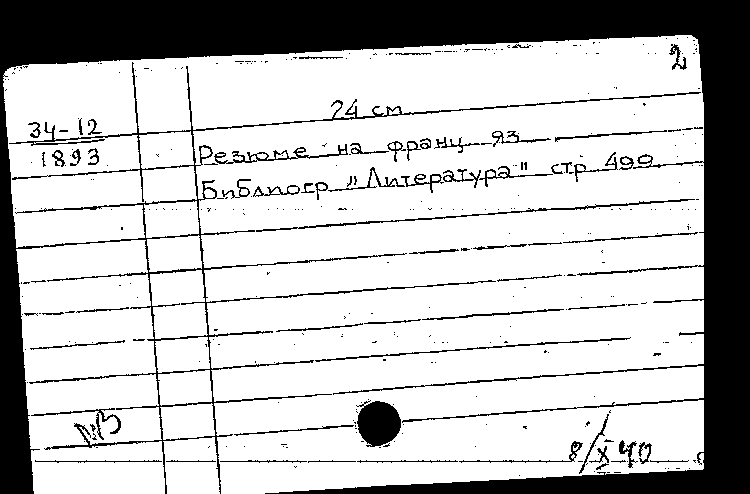 2
24 см
34-12
1893
Резюме на франц яз
Библиогр „Литература" стр 499
NB
8/X 40